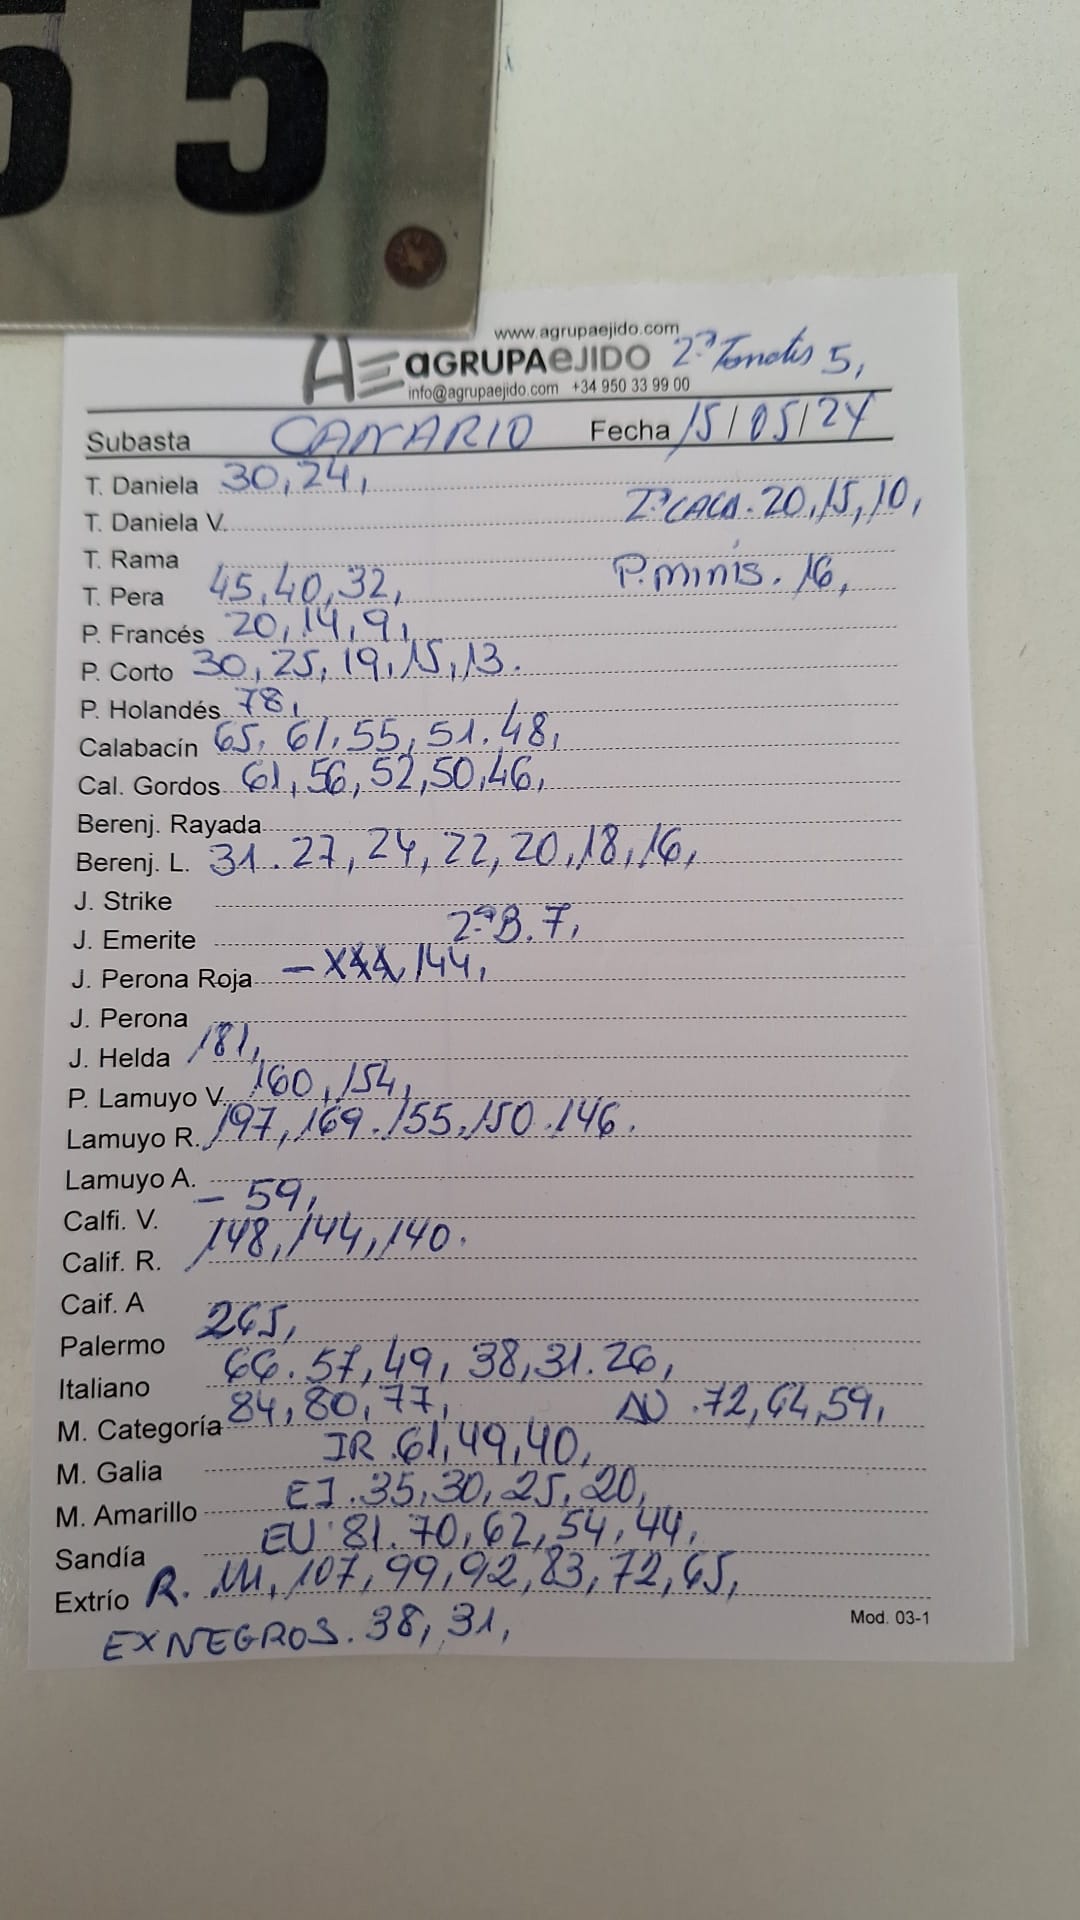 55
www.agrupaejido.com
AE aGRUPAeJIDO 2ª Tomates 5,
info@agrupaejido.com +34 950 33 99 00
Subasta CANARIO Fecha 15/05/24
T. Daniela 30, 24,
T. Daniela V. 2ª CACA. 20, 15, 10,
T. Rama
P. minis. 16,
T. Pera 45, 40, 32,
P. Francés 20, 14, 9,
P. Corto 30, 25, 19, 15, 13.
P. Holandés 78,
Calabacín 65, 61, 55, 51. 48,
Cal. Gordos 61, 56, 52, 50, 46,
Berenj. Rayada
Berenj. L. 31. 27, 24, 22, 20, 18, 16,
J. Strike
J. Emerite 2ª B. 7,
J. Perona Roja – 144,
J. Perona
J. Helda 181,
P. Lamuyo V. 160, 154,
Lamuyo R. 197, 169. 155, 150. 146.
Lamuyo A.
Calfi. V. – 59,
Calif. R. 148, 144, 140.
Caif. A
Palermo 265,
Italiano 66. 57, 49, 38, 31. 26,
M. Categoría 84, 80, 77, . 72, 64, 59,
M. Galia IR. 61, 49, 40,
M. Amarillo EJ. 35, 30, 25, 20,
Sandía EU 81. 70, 62, 54, 44,
Extrío R. 111, 107, 99, 92, 83, 72, 65,
EXNEGROS. 38, 31,
Mod. 03-1